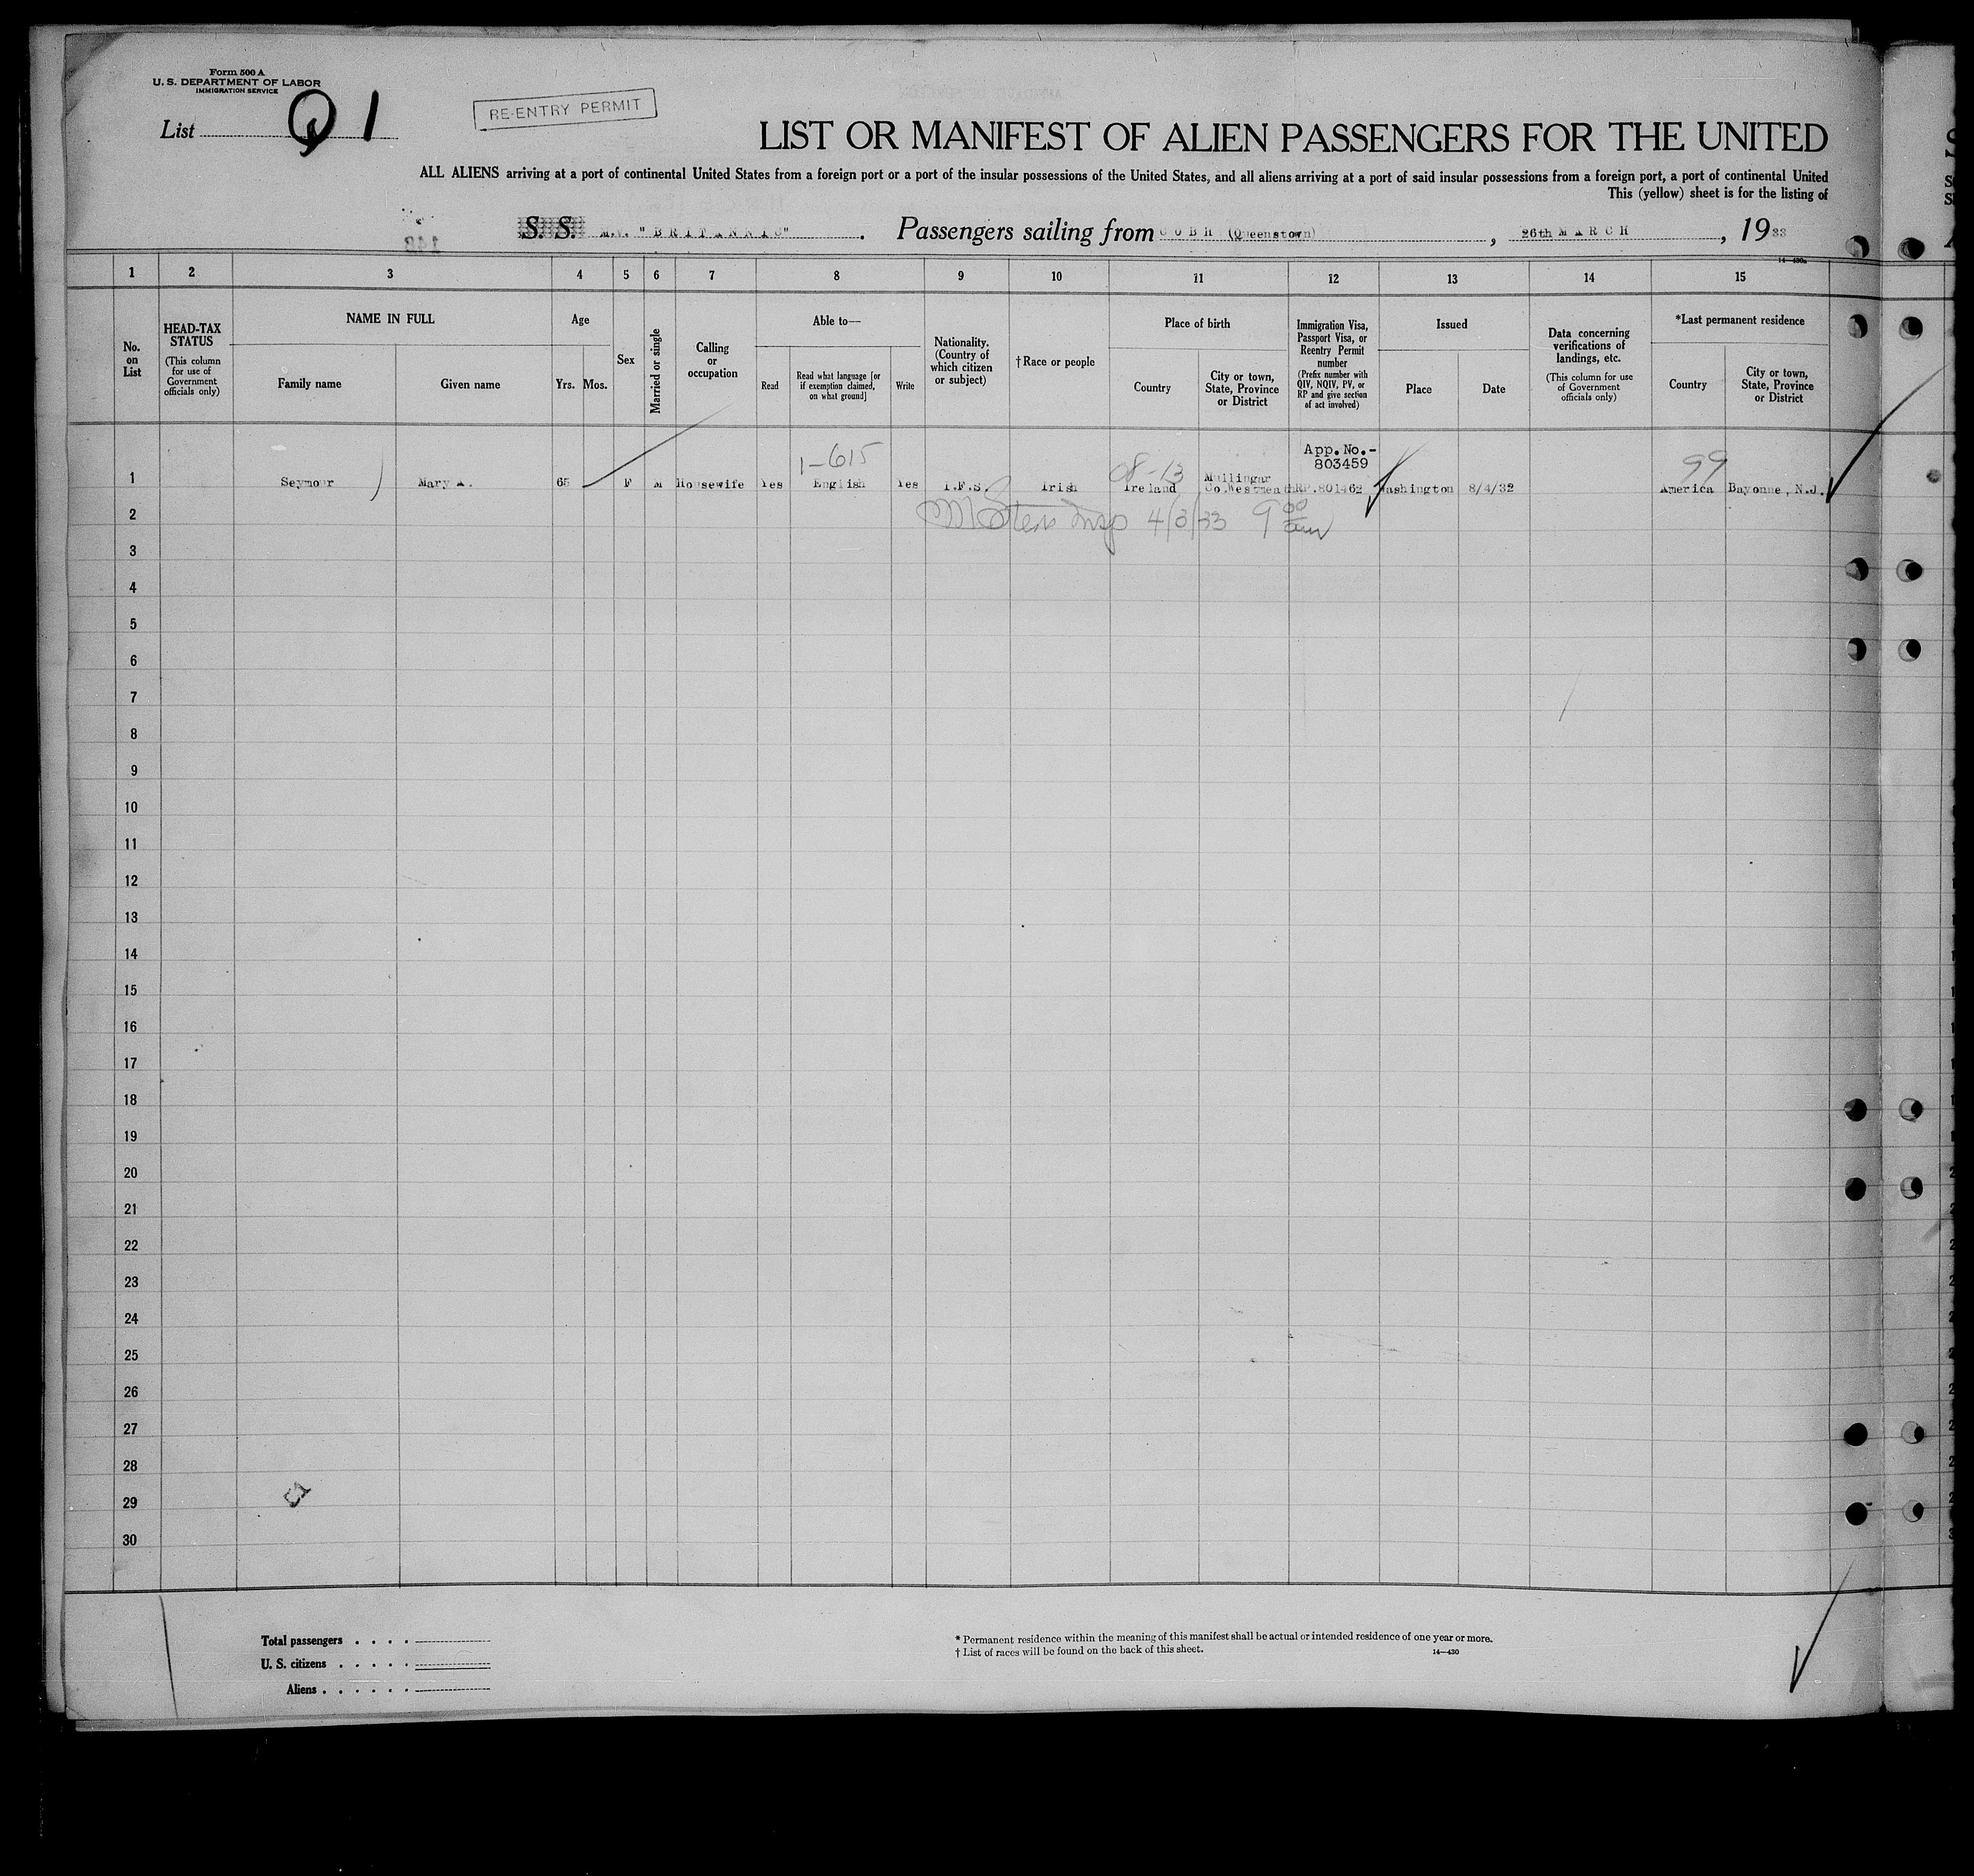 Form 500 A
U. S. DEPARTMENT OF LABOR
IMMIGRATION SERVICE
List 1
RE-ENTRY PERMIT
LIST OR MANIFEST OF ALIEN PASSENGERS FOR THE UNITED
ALL ALIENS arriving at a port of continental United States from a foreign port or a port of the insular possessions of the United States, and all aliens arriving at a port of said insular possessions from a foreign port, a port of continental United
This (yellow) sheet is for the listing of
S. S. M.V. "BRITANNIC". Passengers sailing from COBH (Queenstown), 26th MARCH, 1933
148
14—430a
1 2 3 4 5 6 7 8 9 10 11 12 13 14 15
No. on List
HEAD-TAX STATUS
(This column for use of Government officials only)
NAME IN FULL
Family name Given name
Age
Yrs. Mos.
Sex
Married or single
Calling or occupation
Able to—
Read Read what language [or if exemption claimed, on what ground] Write
Nationality. (Country of which citizen or subject)
†Race or people
Place of birth
Country City or town, State, Province or District
Immigration Visa, Passport Visa, or Reentry Permit number
(Prefix number with QIV, NQIV, PV, or RP and give section of act involved)
Issued
Place Date
Data concerning verifications of landings, etc.
(This column for use of Government officials only)
*Last permanent residence
Country City or town, State, Province or District
1-615 08-13 App.No.- 803459 99
1 Seymour Mary A. 65 F M Housewife Yes English Yes I.F.S. Irish Ireland Mullingar Co.Westmeath RP.801462 Washington 8/4/32 America Bayonne, N.J.
2 Insp 4/3/33 9 00 am
3
4
5
6
7
8
9
10
11
12
13
14
15
16
17
18
19
20
21
22
23
24
25
26
27
28
29
30
Total passengers . . . .
U. S. citizens . . . . .
Aliens . . . . . .
* Permanent residence within the meaning of this manifest shall be actual or intended residence of one year or more.
† List of races will be found on the back of this sheet.
14—430